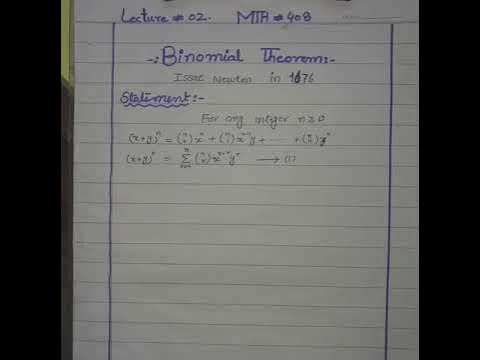 Lecture # 02. MTH # 408
-:. Binomial Theorem:-
Issac Newton in 1676
Statement:-
For any integer n≥0
(x+y)ⁿ = (ⁿ₀)xⁿ + (ⁿ₁)xⁿ⁻¹y + ...... + (ⁿₙ)yⁿ
(x+y)ⁿ = Σⁿᵣ₌₀ (ⁿᵣ)xⁿ⁻ʳyʳ → (1)